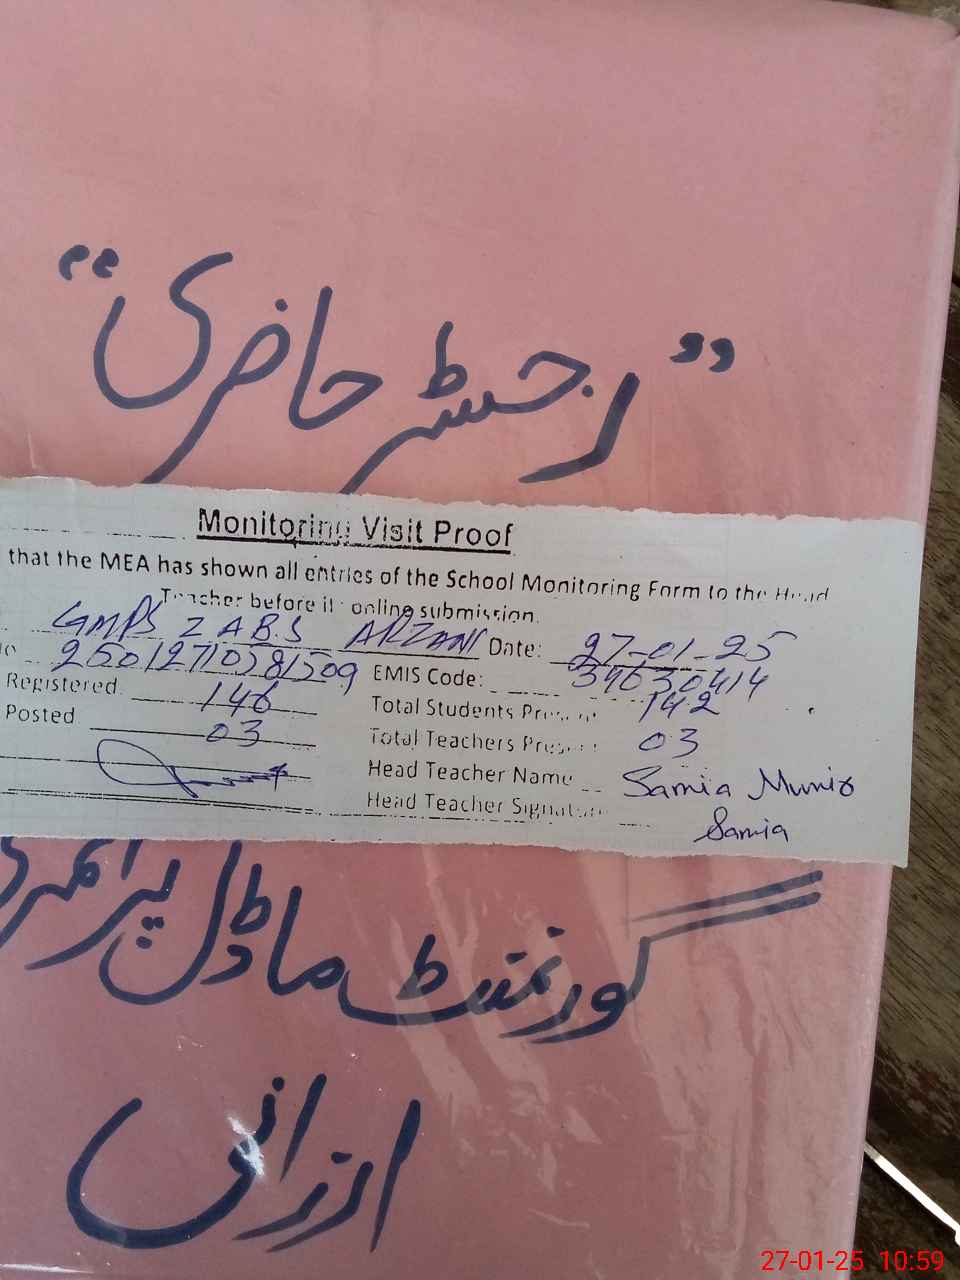 ”رجسٹر حاضری“
Monitoring Visit Proof
that the MEA has shown all entries of the School Monitoring Form to the Head
Teacher before it online submission.
GMPS Z A B.S ARZANI Date: 27-01-25
EMIS Code:
Registered 146 Total Students Present 142
Posted 03 Total Teachers Present 03
Head Teacher Name Samia Munir
Head Teacher Signature Samia
گورنمنٹ ماڈل پرائمری
ارزانی
27-01-25 10:59